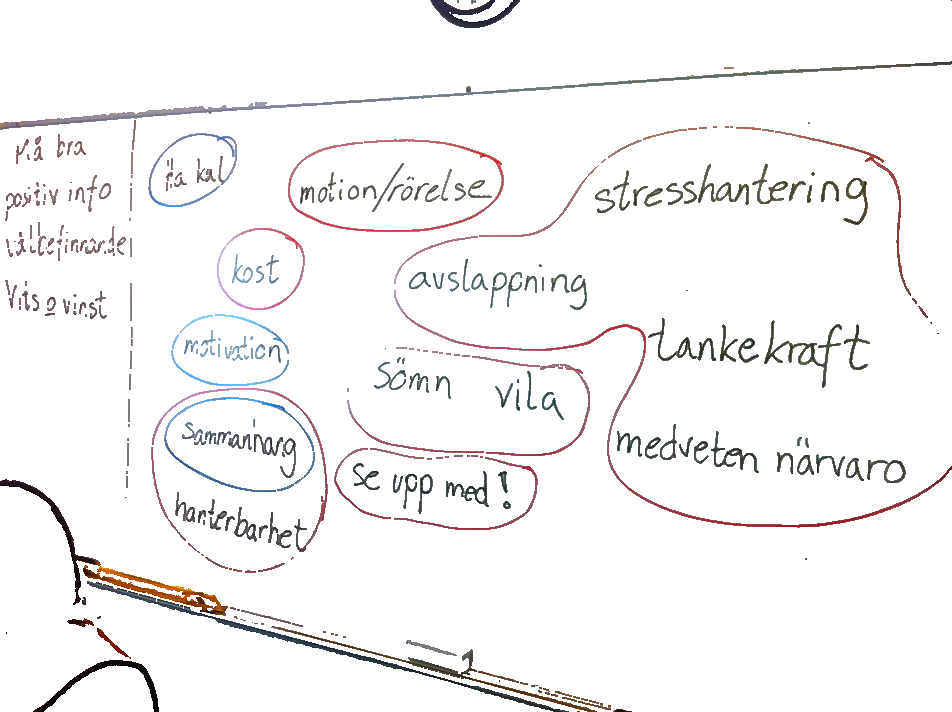 Må bra
positiv info
välbefinnande
Vits o vinst
Ha kul
motion/rörelse
stresshantering
kost
avslappning
motivation
tankekraft
sömn vila
sammanhang
medveten närvaro
se upp med!
hanterbarhet